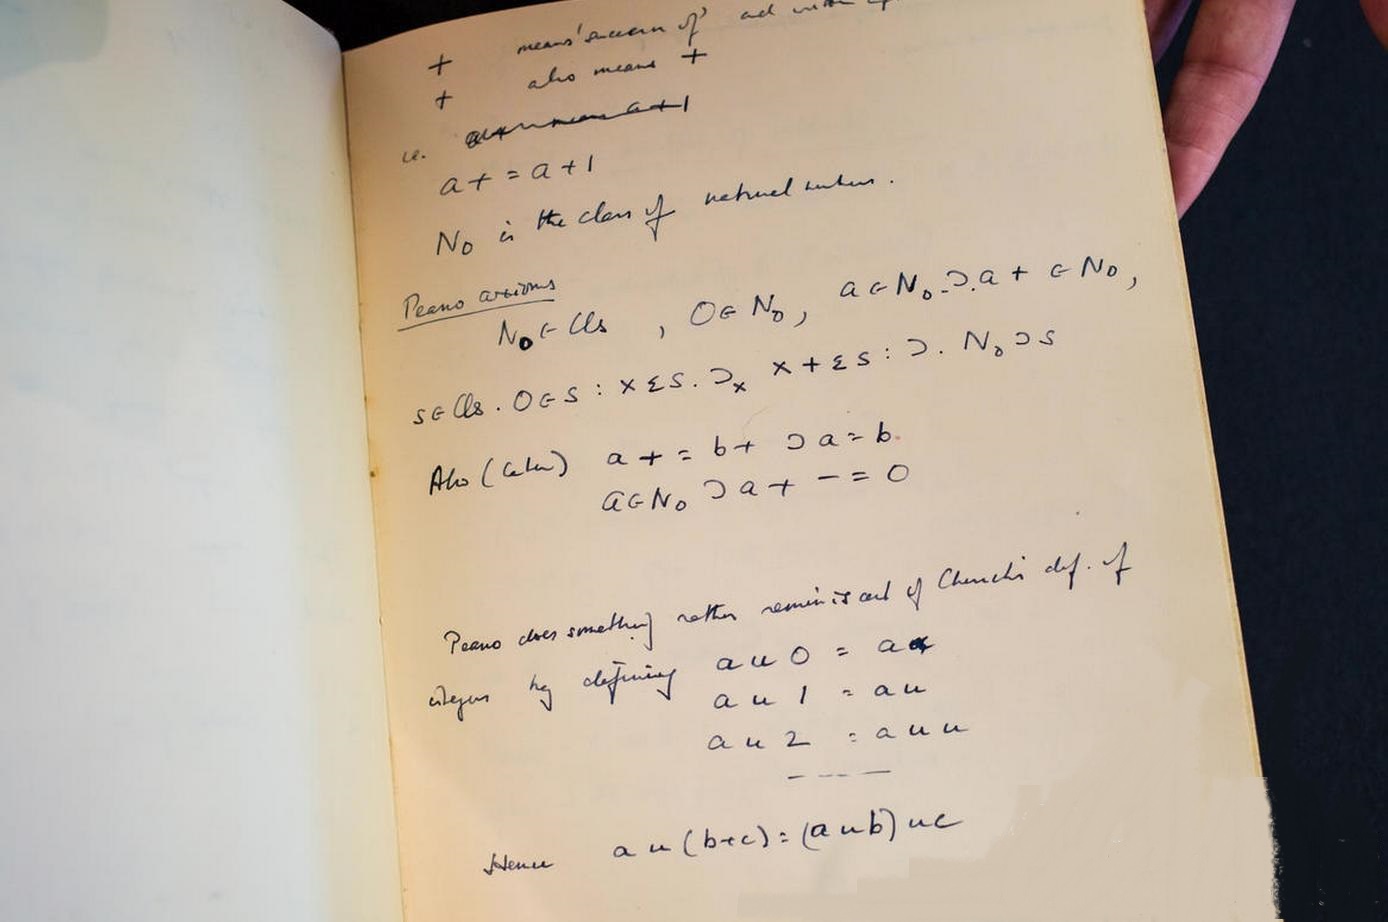 + means 'successor of' and
+ also means +
i.e. a+ means a+1
a+ = a+1
N₀ is the class of natural numbers.
Peano axioms
N₀ ∈ Cls , 0 ∈ N₀, a ∈ N₀ .⊃. a+ ∈ N₀,
s ∈ Cls . 0 ∈ s : x ε s . ⊃ₓ x+ ε s : ⊃. N₀ ⊃ s
Also (later) a+ = b+ ⊃ a = b.
a ∈ N₀ ⊃ a+ -= 0
Peano does something rather reminiscent of Church's def. of
integers by defining a u 0 = a
a u 1 = a u
a u 2 = a u u
- - - -
Hence a u (b+c) = (a u b) u c